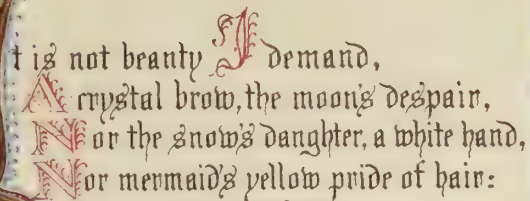 t is not beauty I demand,
A crystal brow, the moon's despair,
Nor the snow's daughter, a white hand,
Nor mermaid's yellow pride of hair: